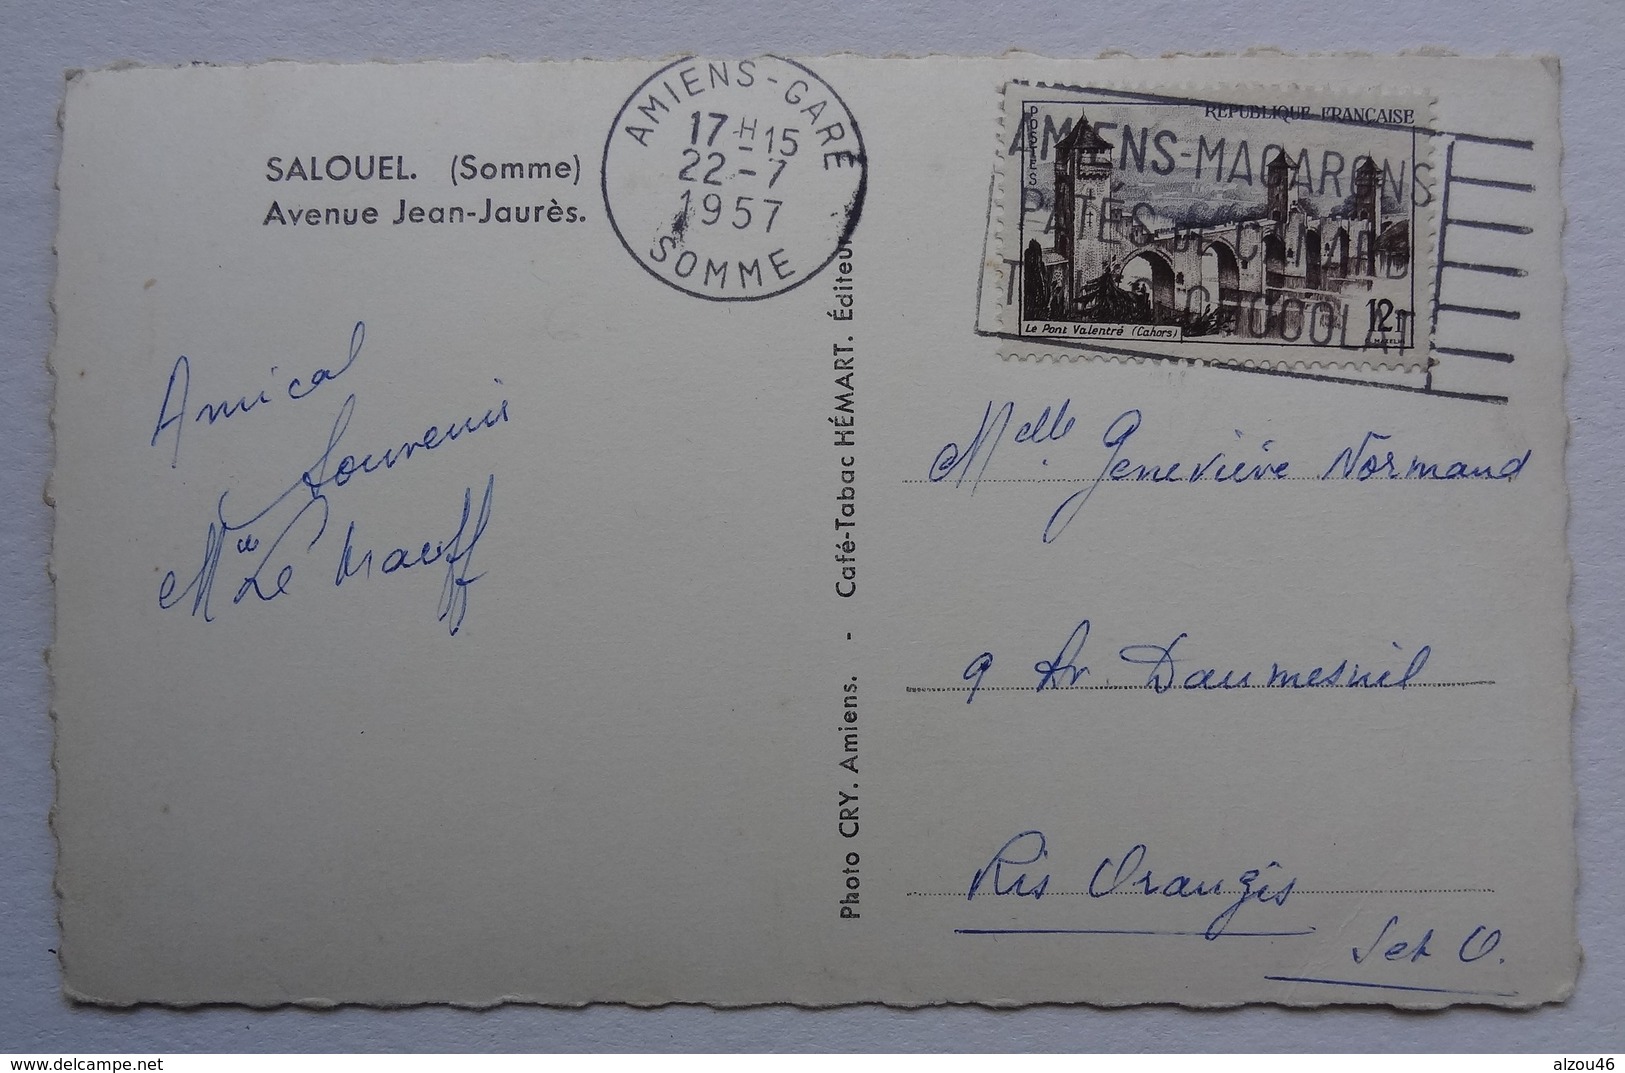 SALOUEL. (Somme)
Avenue Jean-Jaurès.
AMIENS-GARE
17H15
22-7
1957
SOMME
POSTES
REPUBLIQUE FRANÇAISE
AMIENS-MACARONS
PATÉS DE CANARD
CHOCOLAT
12F
Le Pont Valentré (Cahors)
MAZELIN
Amical
Souvenir
Mlle Le
Photo CRY. Amiens. - Café-Tabac HÉMART. Éditeur
Melle Geneviève Normand
9 Av. Daumesnil
Ris Orangis
S et O.
delcampe.net
alzou46